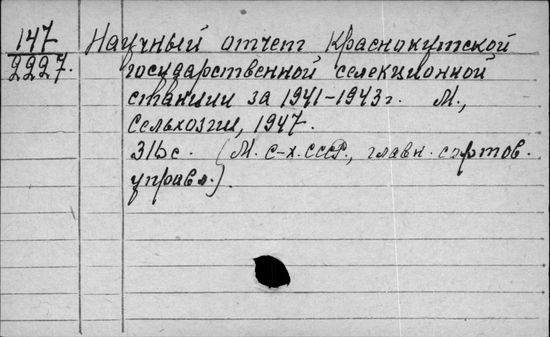 147 Научный отчет Краснокутской
2227. государственной селекционной
станции за 1941-1943г. М.,
Сельхозгиз, 1947.
316с. (М. с-х. СССР., главн. сортов.
управл.).